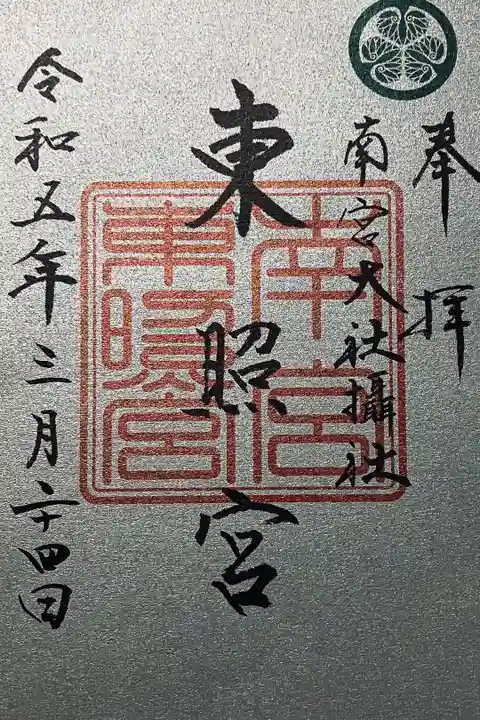 奉拝
南宮大社攝社
東照宮
南宮
東照宮
令和五年三月二十四日